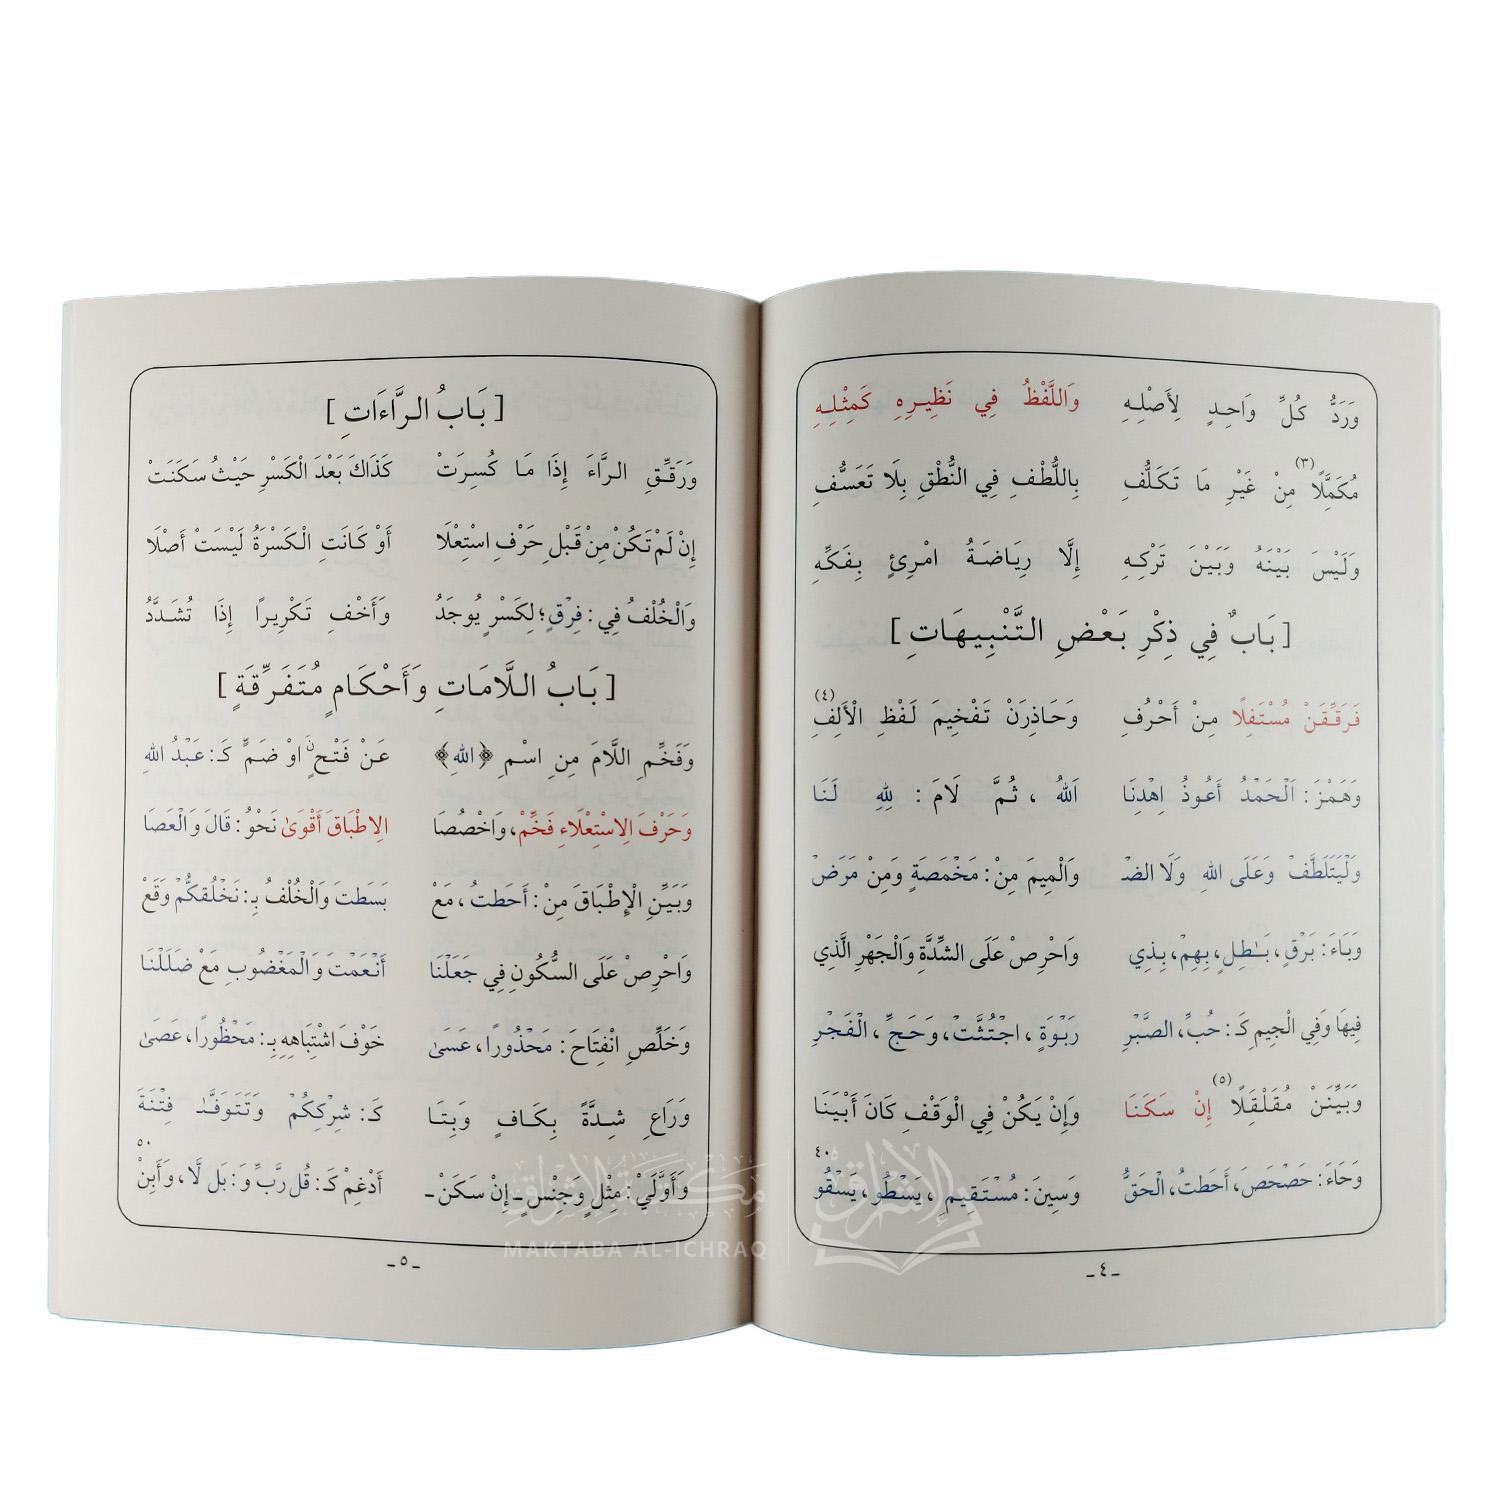 وَرَدُّ كُلِّ وَاحِدٍ لِأَصْلِهِ وَاللَّفْظُ فِي نَظِيرِهِ كَمِثْلِهِ
مُكَمَّلًا(٣) مِنْ غَيْرِ مَا تَكَلُّفِ بِاللُّطْفِ فِي النُّطْقِ بِلَا تَعَسُّفِ
وَلَيْسَ بَيْنَهُ وَبَيْنَ تَرْكِهِ إِلَّا رِيَاضَةُ امْرِئٍ بِفَكِّهِ
[ بَابٌ فِي ذِكْرِ بَعْضِ التَّنْبِيهَاتِ ]
فَرَقِّقَنْ مُسْتَفِلًا مِنْ أَحْرُفِ وَحَاذِرَنْ تَفْخِيمَ لَفْظِ الْأَلِفِ(٤)
وَهَمْزَ: اَلْحَمْدُ أَعُوذُ اِهْدِنَا اَللهُ ، ثُمَّ لَامَ : لِلهِ لَنَا
وَلْيَتَلَطَّفْ وَعَلَى اللهِ وَلَا الضْ وَالْمِيمَ مِنْ: مَخْمَصَةٍ وَمِنْ مَرَضْ
وَبَاءَ: بَرْقٍ، بَـٰطِلٍ، بِهِمْ، بِذِي وَاحْرِصْ عَلَى الشِّدَّةِ وَالْجَهْرِ الَّذِي
فِيهَا وَفِي الْجِيمِ كَـ: حُبِّ، الصَّبْرِ رَبْوَةٍ ، اجْتُثَّتْ، وَحَجِّ ، الْفَجْرِ
وَبَيِّنَنْ مُقَلْقَلًا(٥) إِنْ سَكَنَا وَإِنْ يَكُنْ فِي الْوَقْفِ كَانَ أَبْيَنَا
وَحَاءَ: حَصْحَصَ، أَحَطتُ، الْحَقُّ وَسِينَ: مُسْتَقِيمِ ، يَسْطُو، يَسْقُو ٤٠
- ٤ -
[ بَابُ الرَّاءَاتِ ]
وَرَقِّقِ الرَّاءَ إِذَا مَا كُسِرَتْ كَذَاكَ بَعْدَ الْكَسْرِ حَيْثُ سَكَنَتْ
إِنْ لَمْ تَكُنْ مِنْ قَبْلِ حَرْفِ اسْتِعْلَا أَوْ كَانَتِ الْكَسْرَةُ لَيْسَتْ أَصْلَا
وَالْخُلْفُ فِي: فِرْقٍ؛ لِكَسْرٍ يُوجَدُ وَأَخْفِ تَكْرِيرًا إِذَا تُشَدَّدُ
[ بَابُ اللَّامَاتِ وَأَحْكَامٍ مُتَفَرِّقَةٍ ]
وَفَخِّمِ اللَّامَ مِنِ اسْمِ ﴿اللهِ﴾ عَنْ فَتْحٍ نَ اوْ ضَمٍّ كَـ: عَبْدُ اللهِ
وَحَرْفَ الِاسْتِعْلَاءِ فَخِّمْ، وَاخْصُصَا الِاطْبَاقَ أَقْوَىٰ نَحْوُ: قَالَ وَالْعَصَا
وَبَيِّنِ الْإِطْبَاقَ مِنْ: أَحَطتُ ، مَعْ بَسَطتَ وَالْخُلْفُ بِـ: نَخْلُقكُّمْ وَقَعْ
وَاحْرِصْ عَلَى السُّكُونِ فِي جَعَلْنَا أَنْعَمْتَ وَالْمَغْضُوبِ مَعْ ضَلَلْنَا
وَخَلِّصِ انْفِتَاحَ: مَحْذُورًا، عَسَىٰ خَوْفَ اشْتِبَاهِهِ بِـ: مَحْظُورًا، عَصَىٰ
وَرَاعِ شِدَّةً بِكَافٍ وَبِتَا كَـ: شِرْكِكُمْ وَتَتَوَفَّـٰ فِتْنَةَ ٥٠
وَأَوَّلَيْ: مِثْلٍ وَجِنْسٍ - إِنْ سَكَنْ - أَدْغِمْ كَـ: قُل رَّبِّ وَ: بَل لَّا ، وَأَبِنْ
- ٥ -
مكتبة الإشراق
MAKTABA AL-ICHRAQ
الإشراق